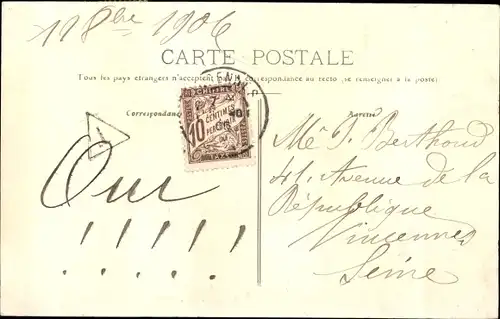 11 8bre 1906
CARTE POSTALE
Tous les pays étrangers n'acceptent pas la correspondance au recto (se renseigner à la poste)
Correspondance
Adresse
T
10
CENTIMES
A PERCEVOIR
Oui
! ! ! ! ! !
Me J. Berthoud
41. Avenue de la
République
Vincennes
Seine